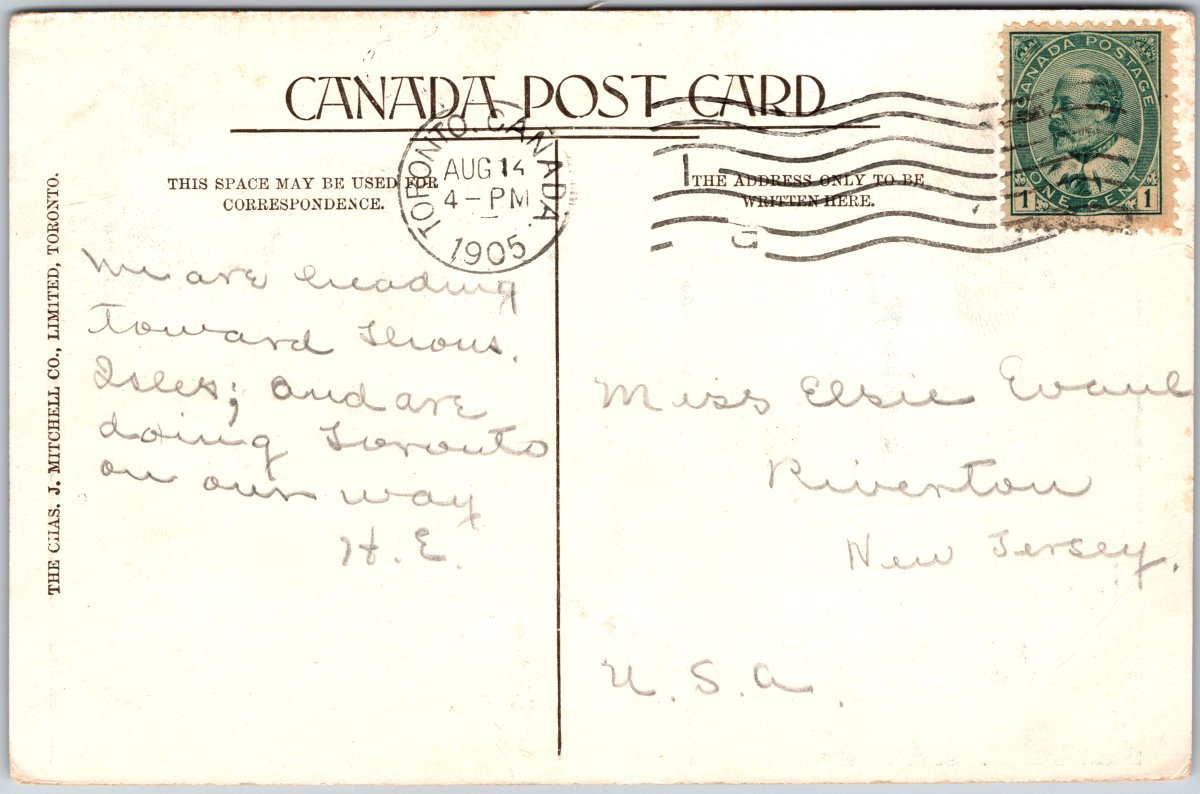 CANADA POST CARD
THIS SPACE MAY BE USED FOR
CORRESPONDENCE.
THE ADDRESS ONLY TO BE
WRITTEN HERE.
TORONTO, CANADA.
AUG 14
4 - PM
1905
CANADA POSTAGE
ONE CENT
1 1
THE CHAS. J. MITCHELL CO., LIMITED, TORONTO.
We are heading
Toward Thous.
Isles; and are
doing Toronto
on our way
H. E.
Miss Elsie Evaul
Riverton
New Jersey.
U. S. A.